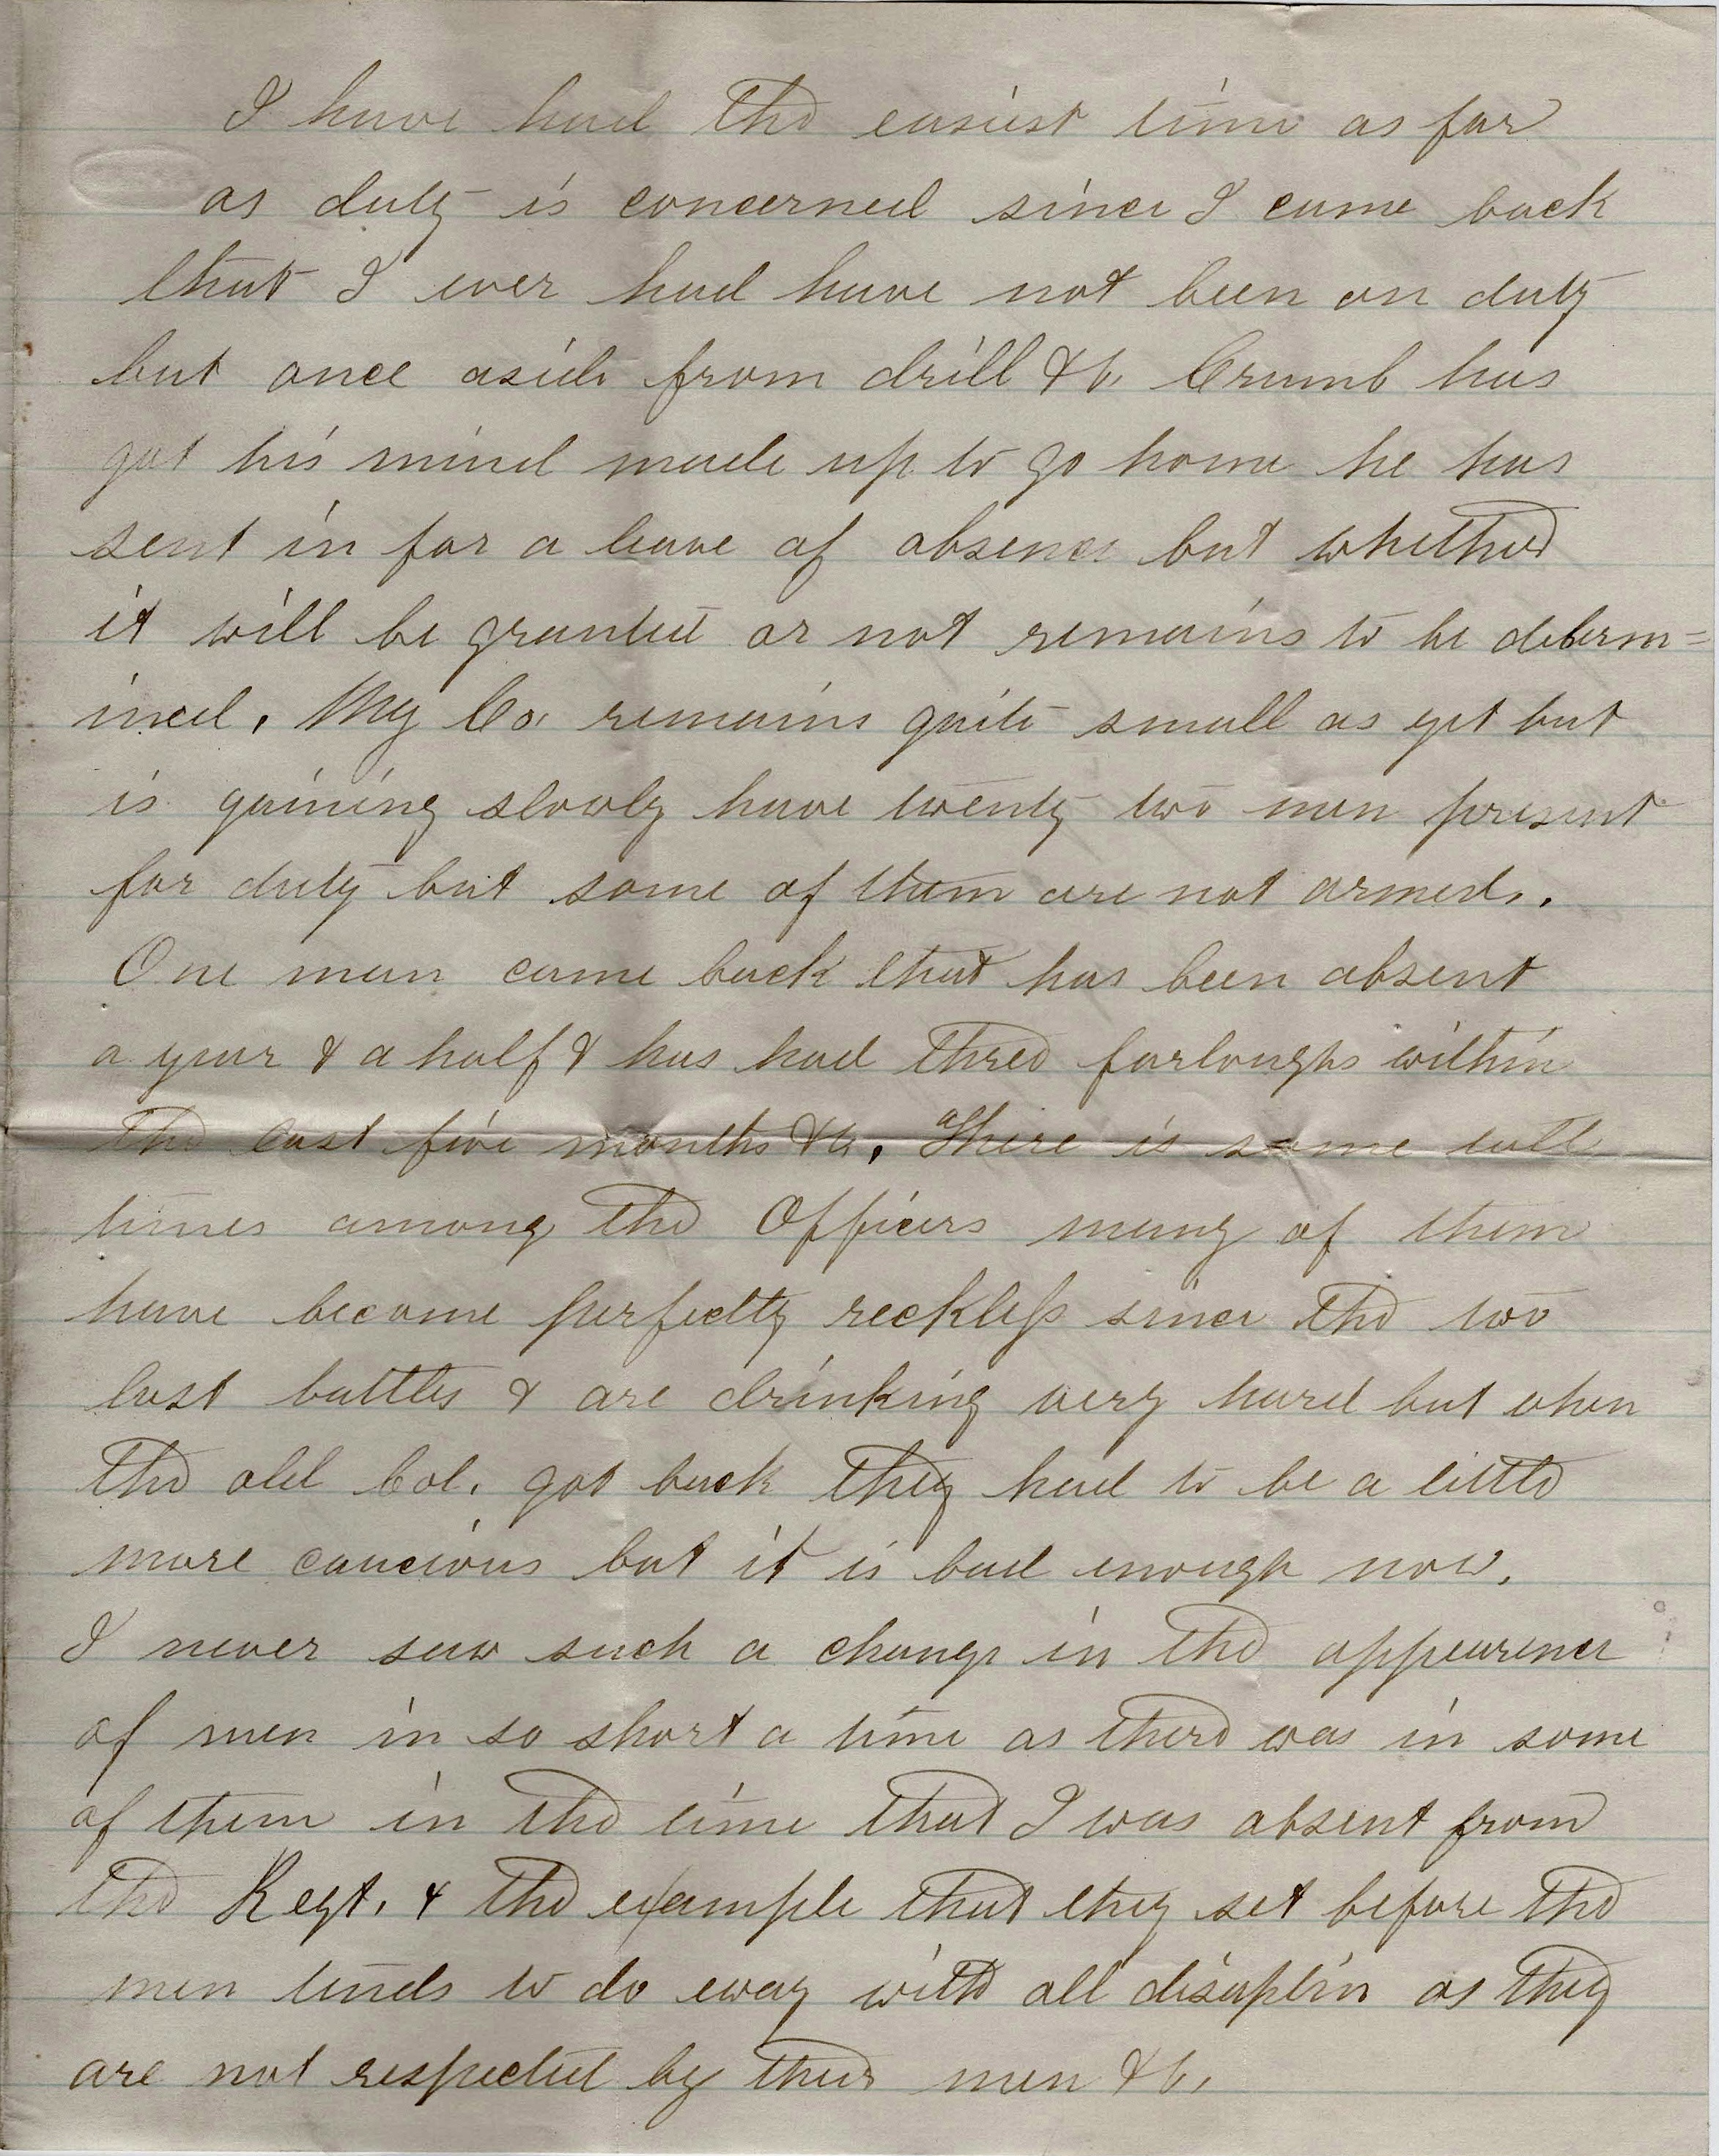 I have had the easiest time as far
as duty is concerned since I came back
that I ever had have not been on duty
but once aside from drill &c. Crumb has
got his mind made up to go home he has
sent in for a leave of absence but whether
it will be granted or not remains to be determ=
ined. My Co. remains quite small as yet but
is gaining slowly have twenty two men present
for duty but some of them are not armed.
One man came back that has been absent
a year & a half & has had three forloughs within
the last five months &c. There is some tall
times among the Officers many of them
have become perfectly reckless since the two
last battles & are drinking very hard but when
the old Col. got back they had to be a little
more caucious but it is bad enough now.
I never saw such a change in the appearence
of men in so short a time as there was in some
of them in the time that I was absent from
the Regt. & the example that they set before the
men tends to do away with all disaplin as they
are not respected by their men &c.